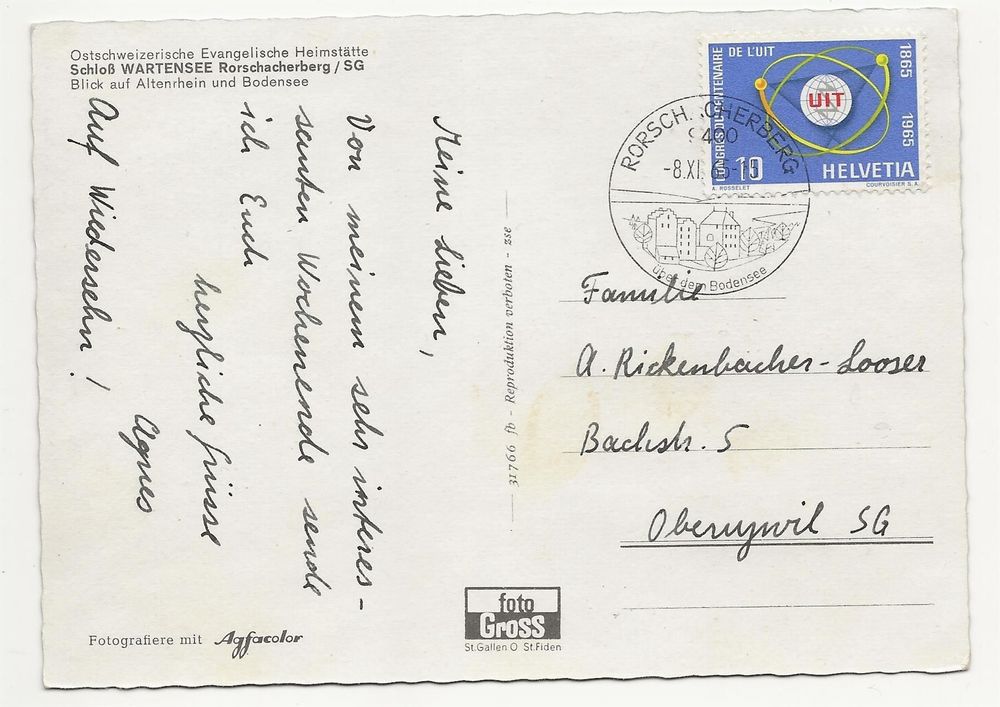 Ostschweizerische Evangelische Heimstätte
Schloß WARTENSEE Rorschacherberg / SG
Blick auf Altenrhein und Bodensee
Meine Lieben,
Von meinem sehr interes-
santen Wochenende sende
ich Euch
herzliche Grüsse
Agnes
Auf Wiedersehn!
Fotografiere mit Agfacolor
31766 fb - Reproduktion verboten - zse
foto
Gross
St.Gallen O St.Fiden
CONGRÈS DU CENTENAIRE DE L'UIT
1865 1965
UIT
10 HELVETIA
A. ROSSELET COURVOISIER S.A.
RORSCH.CHERBERG
9400
-8.XI. 65-15
über dem Bodensee
Familie
A. Rickenbacher-Looser
Bachstr. 5
Oberuzwil SG